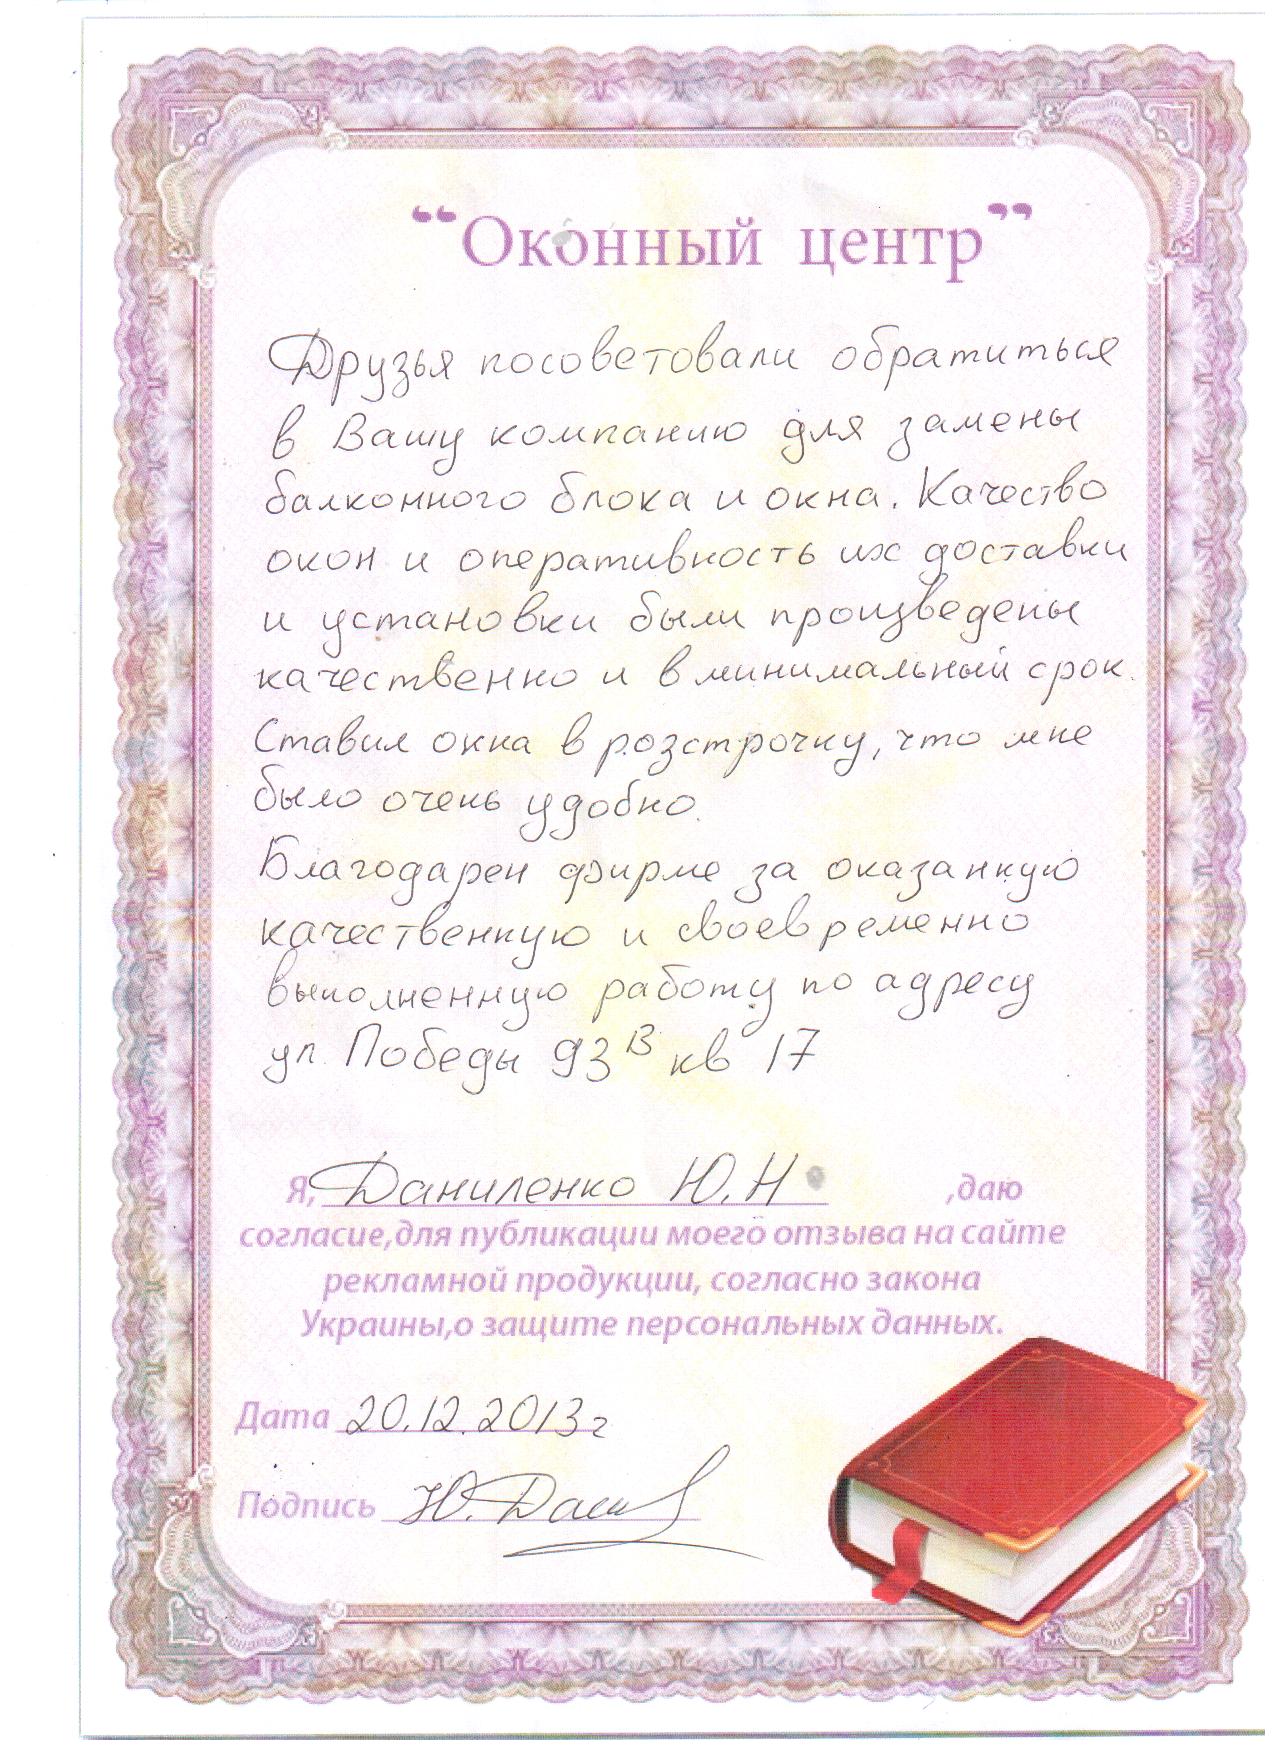 “Оконный центр”
Друзья посоветовали обратиться
в Вашу компанию для замены
балконного блока и окна. Качество
окон и оперативность их доставки
и установки были произведены
качественно и в минимальный срок.
Ставил окна в розстрочку, что мне
было очень удобно.
Благодарен фирме за оказанную
качественную и своевременно
выполненную работу по адресу
ул. Победы 93В кв 17
Я, Даниленко Ю.Н ,даю
согласие,для публикации моего отзыва на сайте
рекламной продукции, согласно закона
Украины,о защите персональных данных.
Дата 20.12.2013г
Подпись